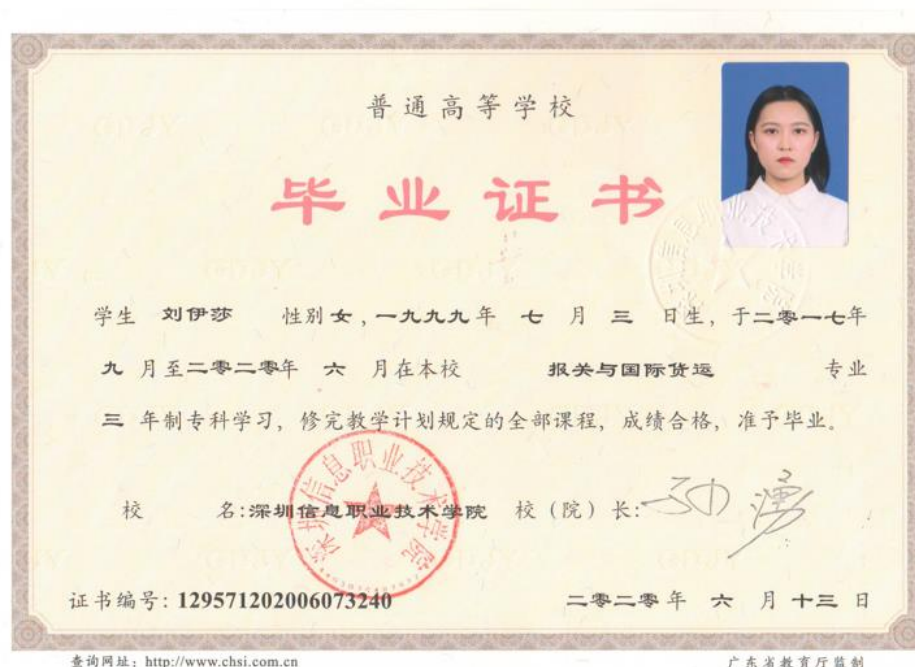 普通高等学校
毕业证书
学生 刘伊莎 性别 女，一九九九年 七 月 三 日生，于二零一七年
九 月至二零二零年 六 月在本校 报关与国际货运 专业
三 年制专科学习，修完教学计划规定的全部课程，成绩合格，准予毕业。
校 名：深圳信息职业技术学院 校（院）长：
深圳信息职业技术学院
证书编号：129571202006073240 二零二零年 六 月 十三 日
查询网址：http://www.chsi.com.cn 广东省教育厅监制